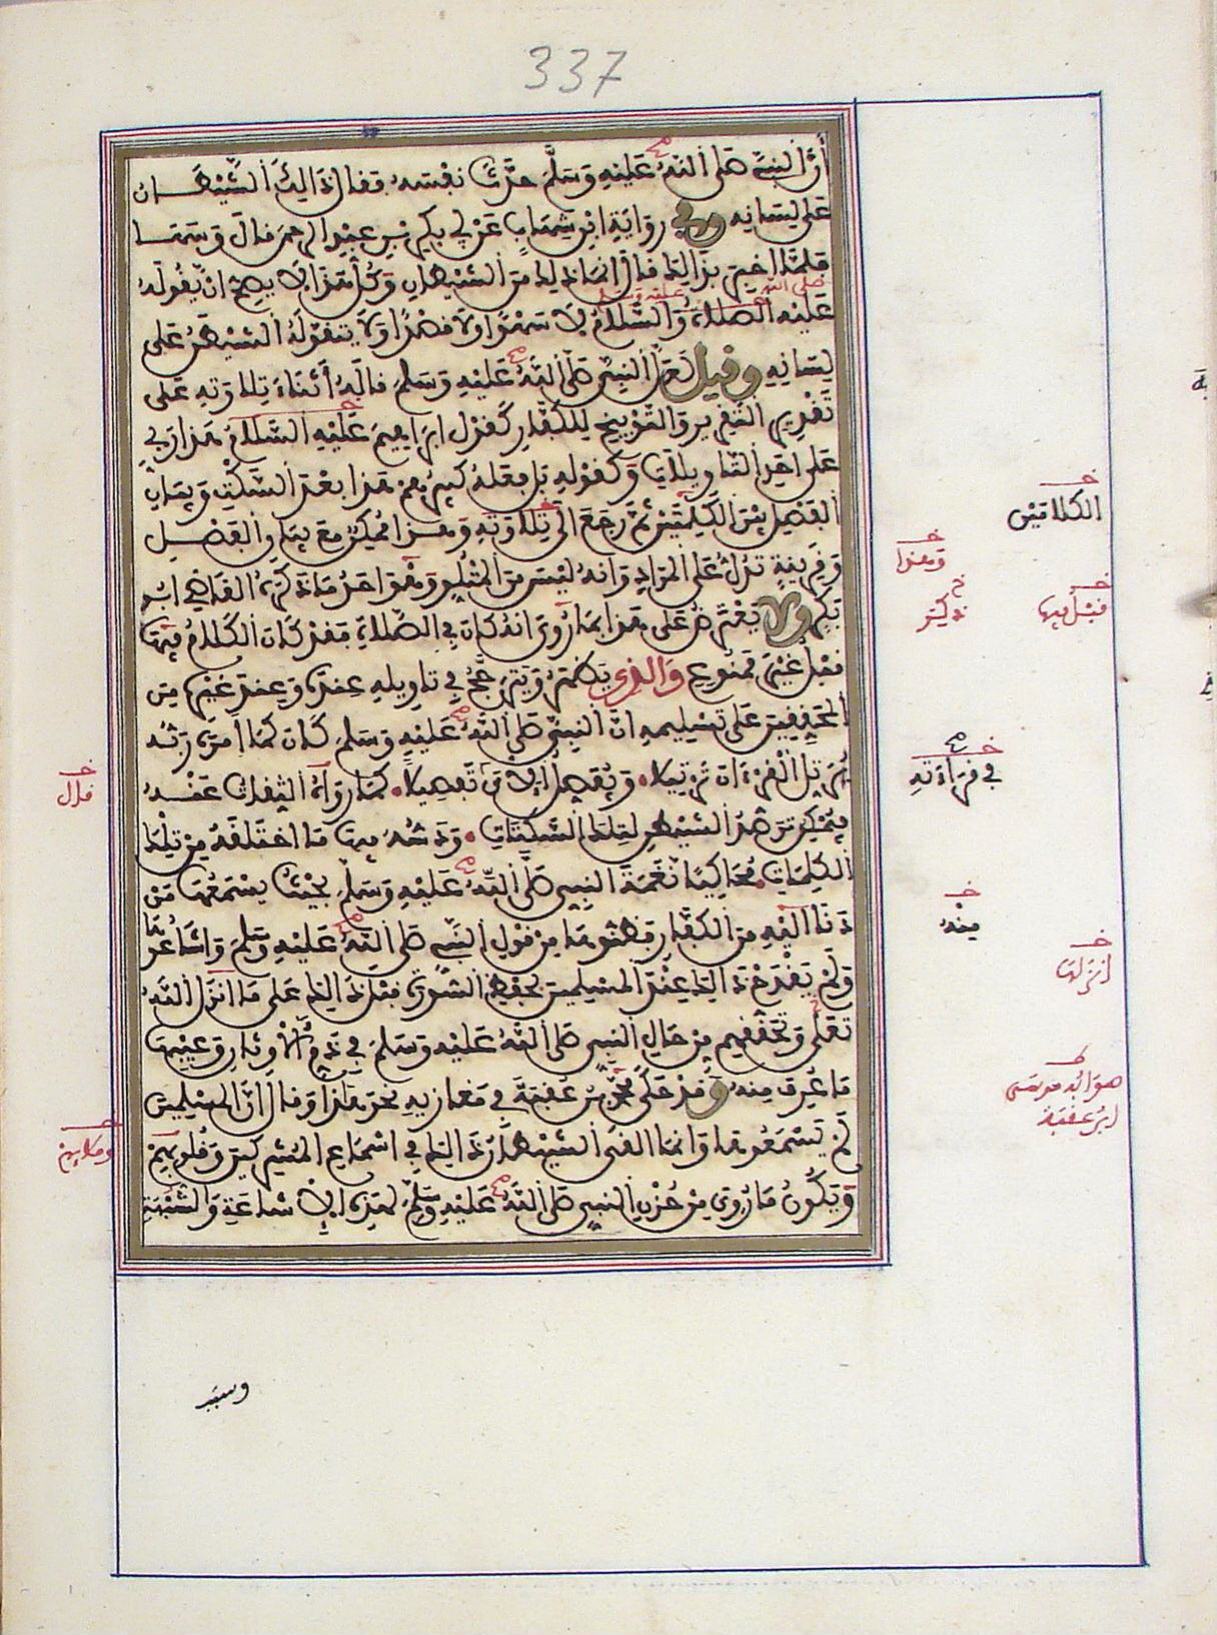 337
أن النبي صلى الله عليه وسلم حدث نفسه فقال ذالك الشيطان
على لسانه وفي رواية ابن شهاب عن أبي بكر بن عبد الرحمن قال وسها
فلما اخبر بذالك قال انما ذلك من الشيطان وكل هذا لا يصح ان يقوله
صلى الله عليه وسلم
عليه الصلاة والسلام لا سهوا ولا قصدا ولا يتقوله الشيطان على
لسانه وقيل لعل النبي صلى الله عليه وسلم قاله أثناء تلاوته على
تقدير التقرير والتوبيخ للكفار كقول ابراهيم عليه السلام هذا ربي
على احد التاويلات وكقوله بل فعله كبيرهم هذا بعد السكت وبيان
الفصل بين الكلمتين ثم رجع الى تلاوته وهذا ممكن مع بيان الفصل
وقرينة تدل على المراد وانه ليس من المتلو وهو احد ما ذكره القاضي ابو
بكر ولا يعترض على هذا بما روي انه كان في الصلاة فقد كان الكلام فيها
قبل غير ممنوع والذي يظهر ويترجح في تاويله عنده وعند غيره من
المحققين على تسليمه ان النبي صلى الله عليه وسلم كان كما امره ربه
يرتل القرءان ترتيلا ويفصل الآي تفصيلا كما رواه الثقات عنه
فيمكن ترصد الشيطان لتلك السكتات ودسه فيها ما اختلقه من تلك
الكلمات محاكيا نغمة النبي صلى الله عليه وسلم بحيث يسمعه من
دنا اليه من الكفار فظنوها من قول النبي صلى الله عليه وسلم واشاعوها
ولم يقدح ذالك عند المسلمين لحفظ السورة قبل ذالك على ما انزل الله
تعلى وتحققهم من حال النبي صلى الله عليه وسلم في ذم الأوثان وعيبها
ما عرف منه وقد حكى محمد بن عقبة في مغازيه نحو هذا وقال ان المسلمين
لم يسمعوها وانما القى الشيطان ذالك في اسماع المشركين وقلوبهم
ويكون ما روي من حزن النبي صلى الله عليه وسلم لهذه الاشاعة والشبهة
الكلامتين
وهذا
ذكر
قبل فيها
في قراءته
قال
منه
انزلها
هو ابو موسى
ابن عقبة
وسبب